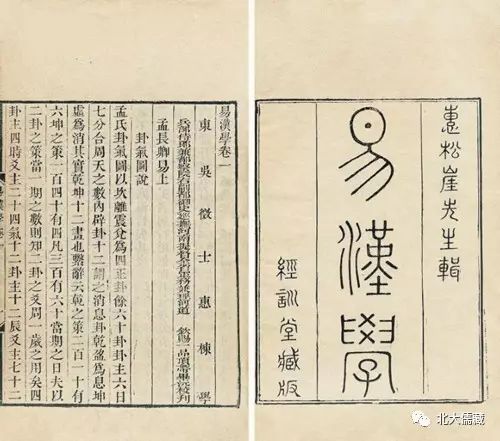 惠松崖先生輯
易漢學
經訓堂藏版
易漢學卷一
東吳徵士惠棟學
兵部侍郎兼都察院右副都御史巡撫河南提督軍務兼理河道 欽賜一品頂帶畢沅校刊
孟長卿易上
卦氣圖說
孟氏卦氣圖以坎離震兌爲四正卦餘六十卦卦主六日
七分合周天之數內辟卦十二謂之消息卦乾盈爲息坤
虛爲消其實乾坤十二畫也繫辭云乾之策二百一十有
六坤之策一百四十有四凡三百有六十當期之日夫以
二卦之策當一期之數則知二卦之爻周一歲之用矣四
卦主四時爻主二十四氣十二卦主十二辰爻主七十二
北大儒藏